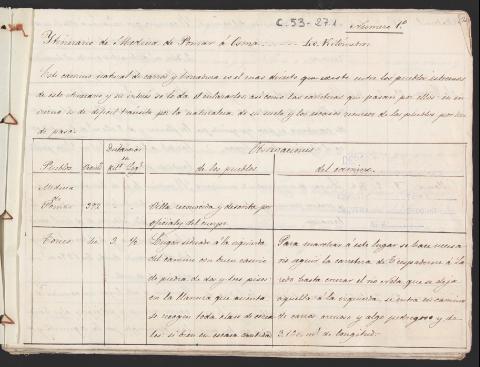 C.53-27.1
Numero 1º
Ytinerario de Medina de Pomar á Osma 60 Kilometros
Este camino natural de carros y herradura es el mas directo que existe entre los pueblos estremos
de este itinerario y su interes se lo da el enlazarlos, asi como las carreteras que pasan por ellos: en in
vierno es de dificil tránsito por la naturaleza de su suelo y los escasos recursos de los pueblos por don
de pasa.
Distancias en Observaciones
Pueblos Kil.s Leg.s de los pueblos del camino.
Medina
de
Pomar 392 - - Villa reconocida y descrita por
oficiales del cuerpo.
Torres 40 3 ½ Lugar situado á la izquierda Para marchar á este lugar se hace necesa
del camino con buen caserio rio seguir la carretera de Trespaderne á La
de piedra de dos y tres pisos: redo hasta cruzar el rio Nela, que se deja
en la llanura que asienta aquella á la izquierda, y entra en camino
se recogen toda clase de cerea de carros arenoso y algo pedregoso y de
les si bien en escasa cantidad 3 de longitud.